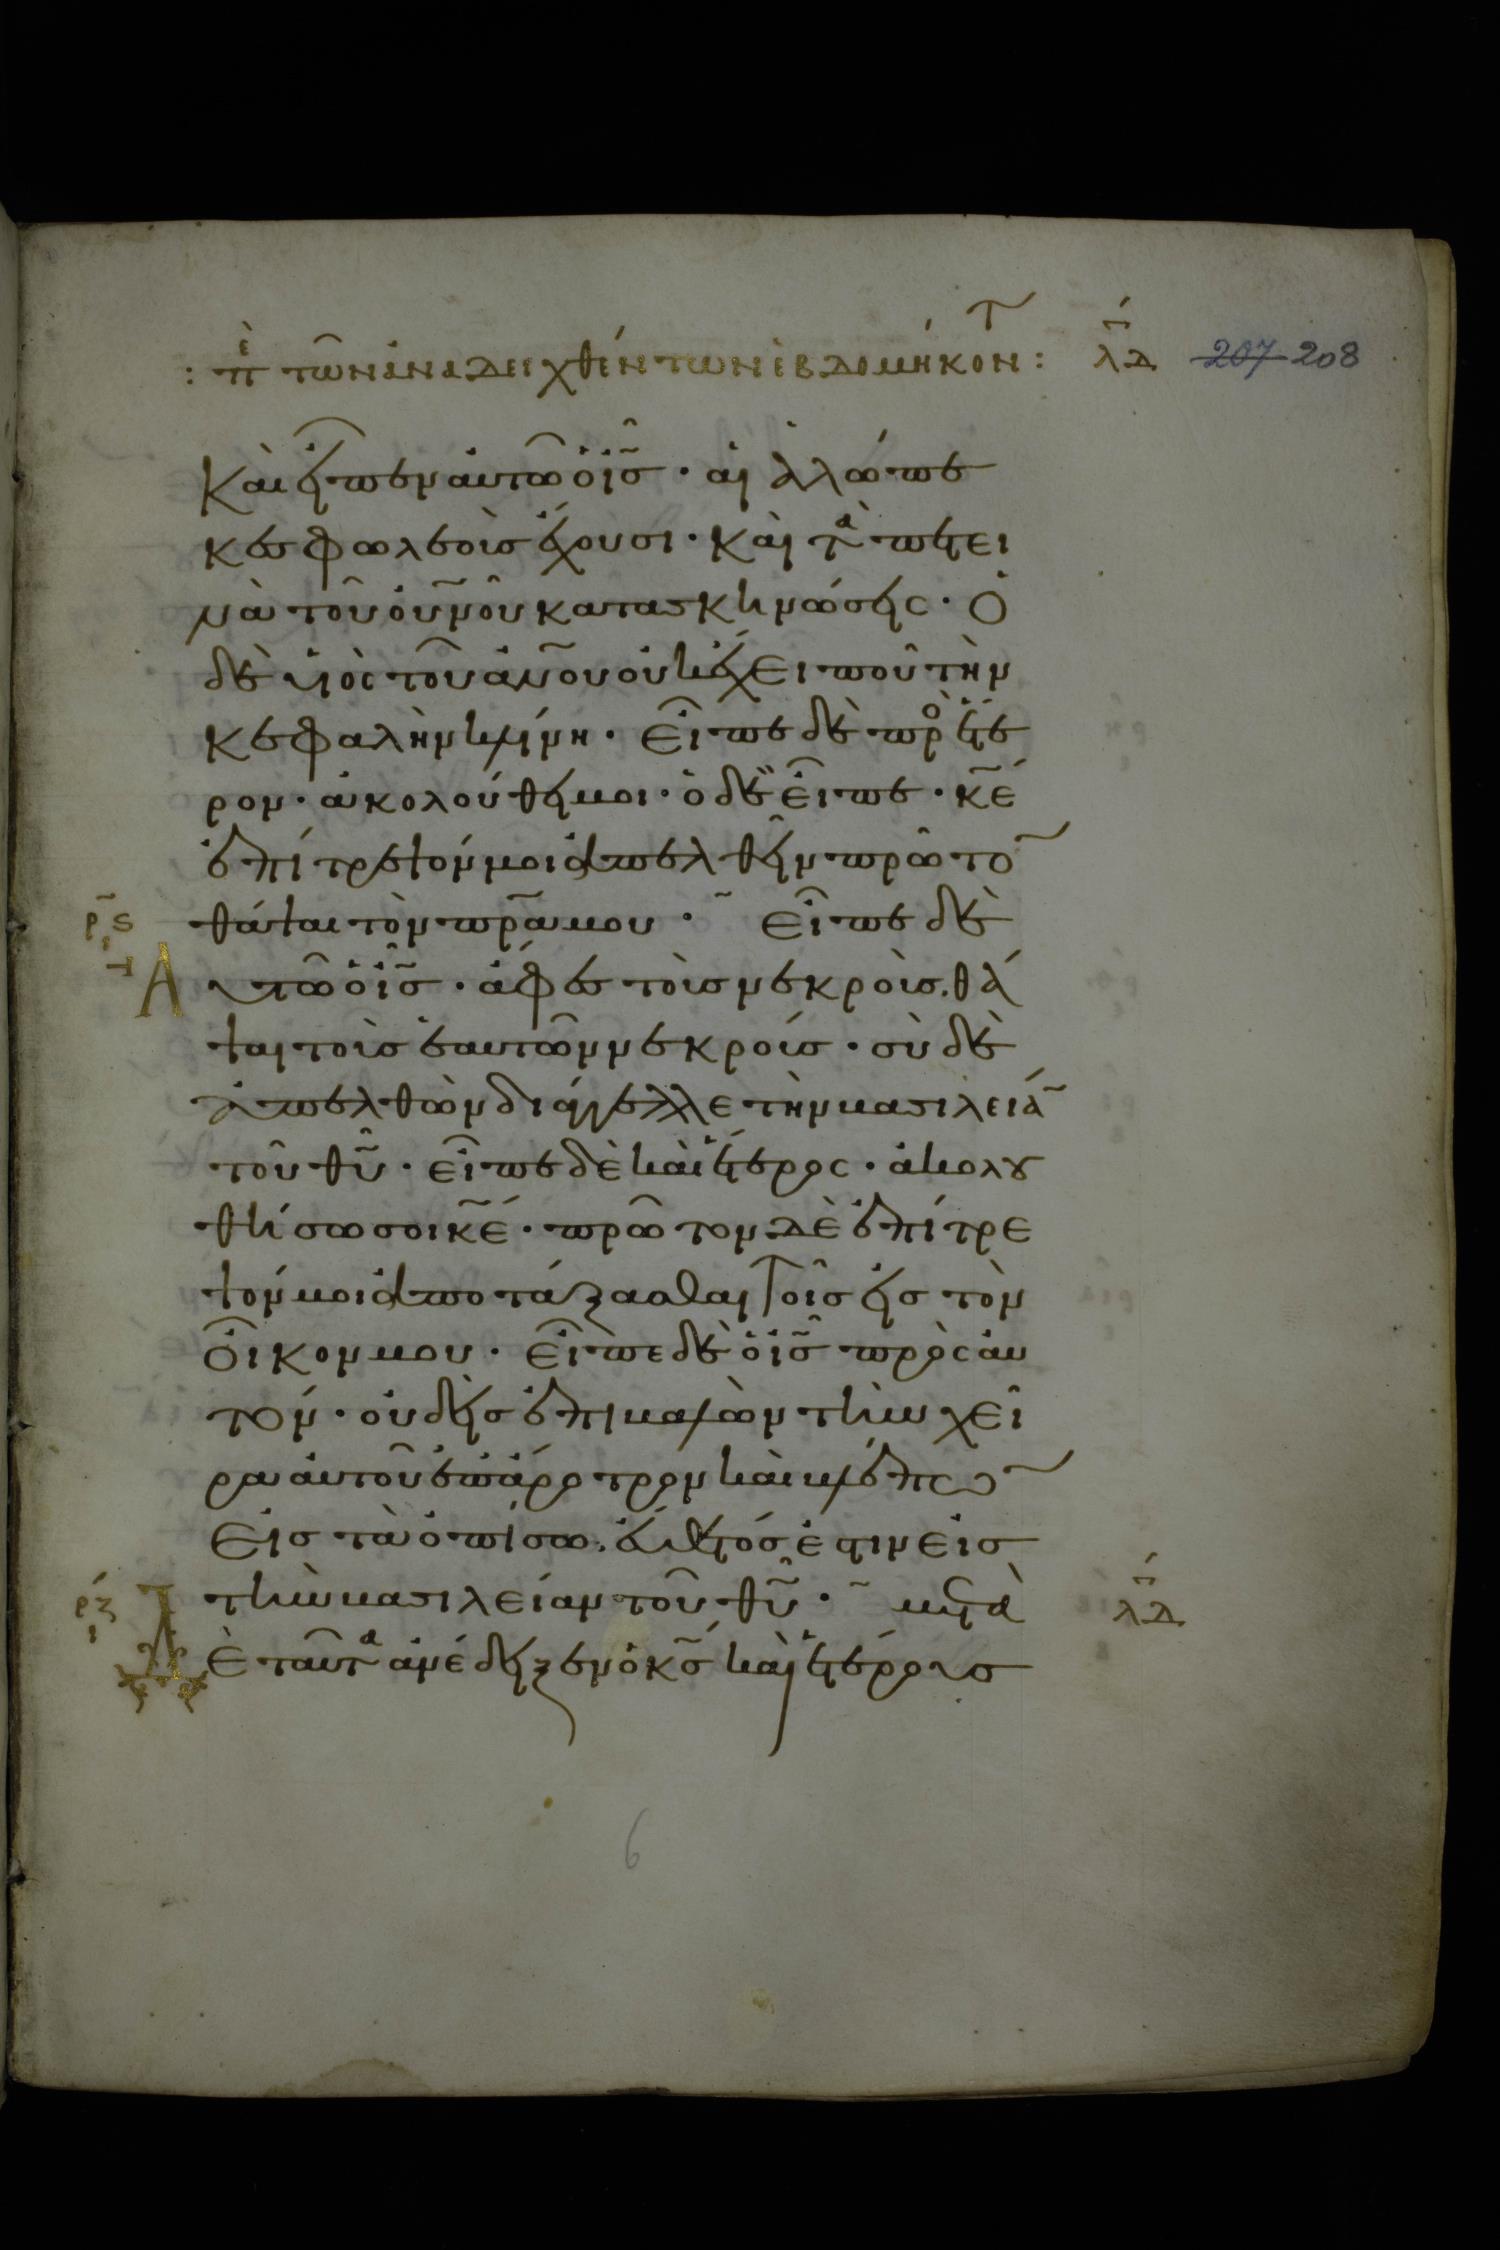 : πε τῶν ἀναδειχθέντων ἑβδομήκοντ : λδ 207 208
Καὶ εἶπεν αὐτῶ ὁ ις̃ · αἱ ἀλώπε
κες φωλεοὺς ἔχουσι · καὶ τὰ πετει
νὰ τοῦ οὐνοῦ κατασκηνώσεις · Ὁ
δὲ υἱὸς τοῦ ἀνου οὐκ ἔχει ποῦ τὴν
κεφαλὴν κλίνη · Εἶπε δὲ πρὸ ἕτε
ρον · ἀκολούθει μοι · ὁ δὲ εἶπε · κέ
ἐπίτρεψόν μοι ἀπελθεῖν πρῶτο
θάψαι τὸν πρα μου · Εἶπε δὲ
ρϛ
Α υτῶ ὁ ις · ἄφες τοὺς νεκροὺς θά
ψαι τοὺς ἑαυτῶν νεκρούς · σὺ δὲ
ἀπελθὼν διάγγελλε τὴν βασιλεία
τοῦ θυ · εἶπε δὲ καὶ ἕτερος · ἀκολου
θήσω σοι κέ · πρῶτον δὲ ἐπίτρε
ψόν μοι ἀποτάξασθαι τοῖς εἰς τὸν
οἶκόν μου · Εἶπε δὲ ὁ ις πρὸς αὐ
τόν · οὐδεὶς ἐπιβαλὼν τὴν χεῖ
ρα αὐτοῦ ἐπ' ἄροτρον καὶ βλέπω
Εἰς τὰ ὀπίσω, εὔθετός ἐστιν εἰς
τὴν βασιλείαν τοῦ θυ · μετὰ λδ
ρζ
Ὲ ταῦτα ἀνέδειξεν ὁ κς καὶ ἑτέρους
6